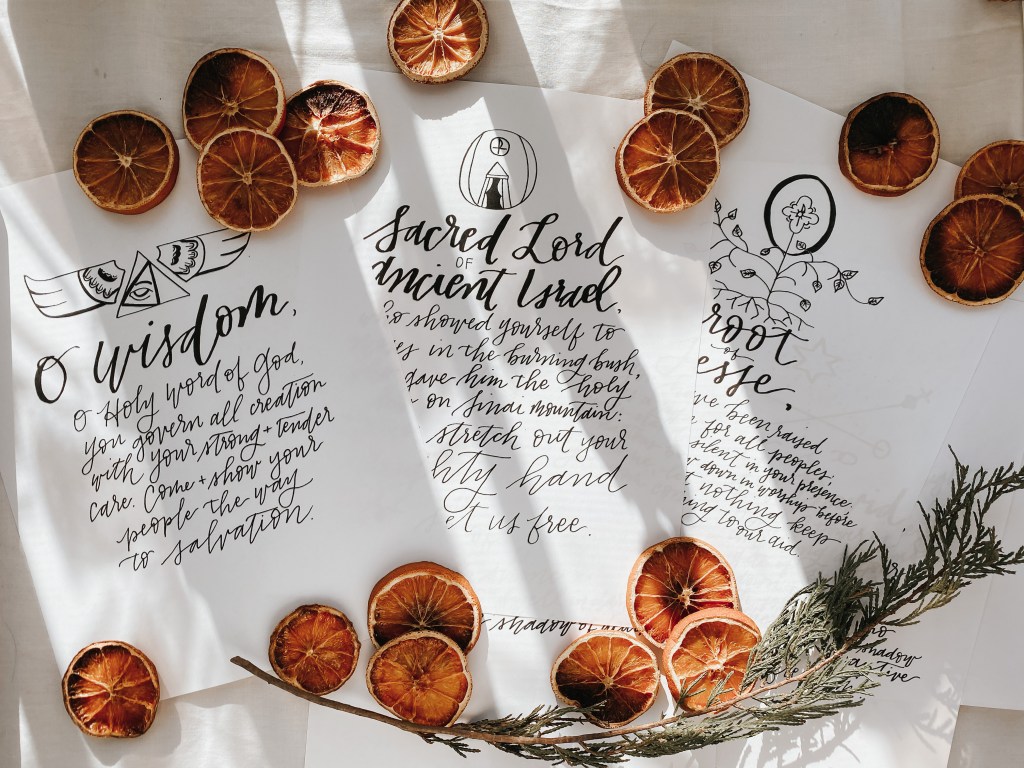 O wisdom,
O Holy word of God,
you govern all creation
with your strong + tender
care. Come + show your
people the way
to salvation.
Sacred Lord
OF
Ancient Israel,
showed yourself to
in the burning bush,
gave him the holy
on Sinai mountain:
stretch out your
hand
us free.
root
of
esse,
been raised
for all peoples;
silent in your presence;
down in worship before
nothing keep
to our aid.
shadow of
shadow